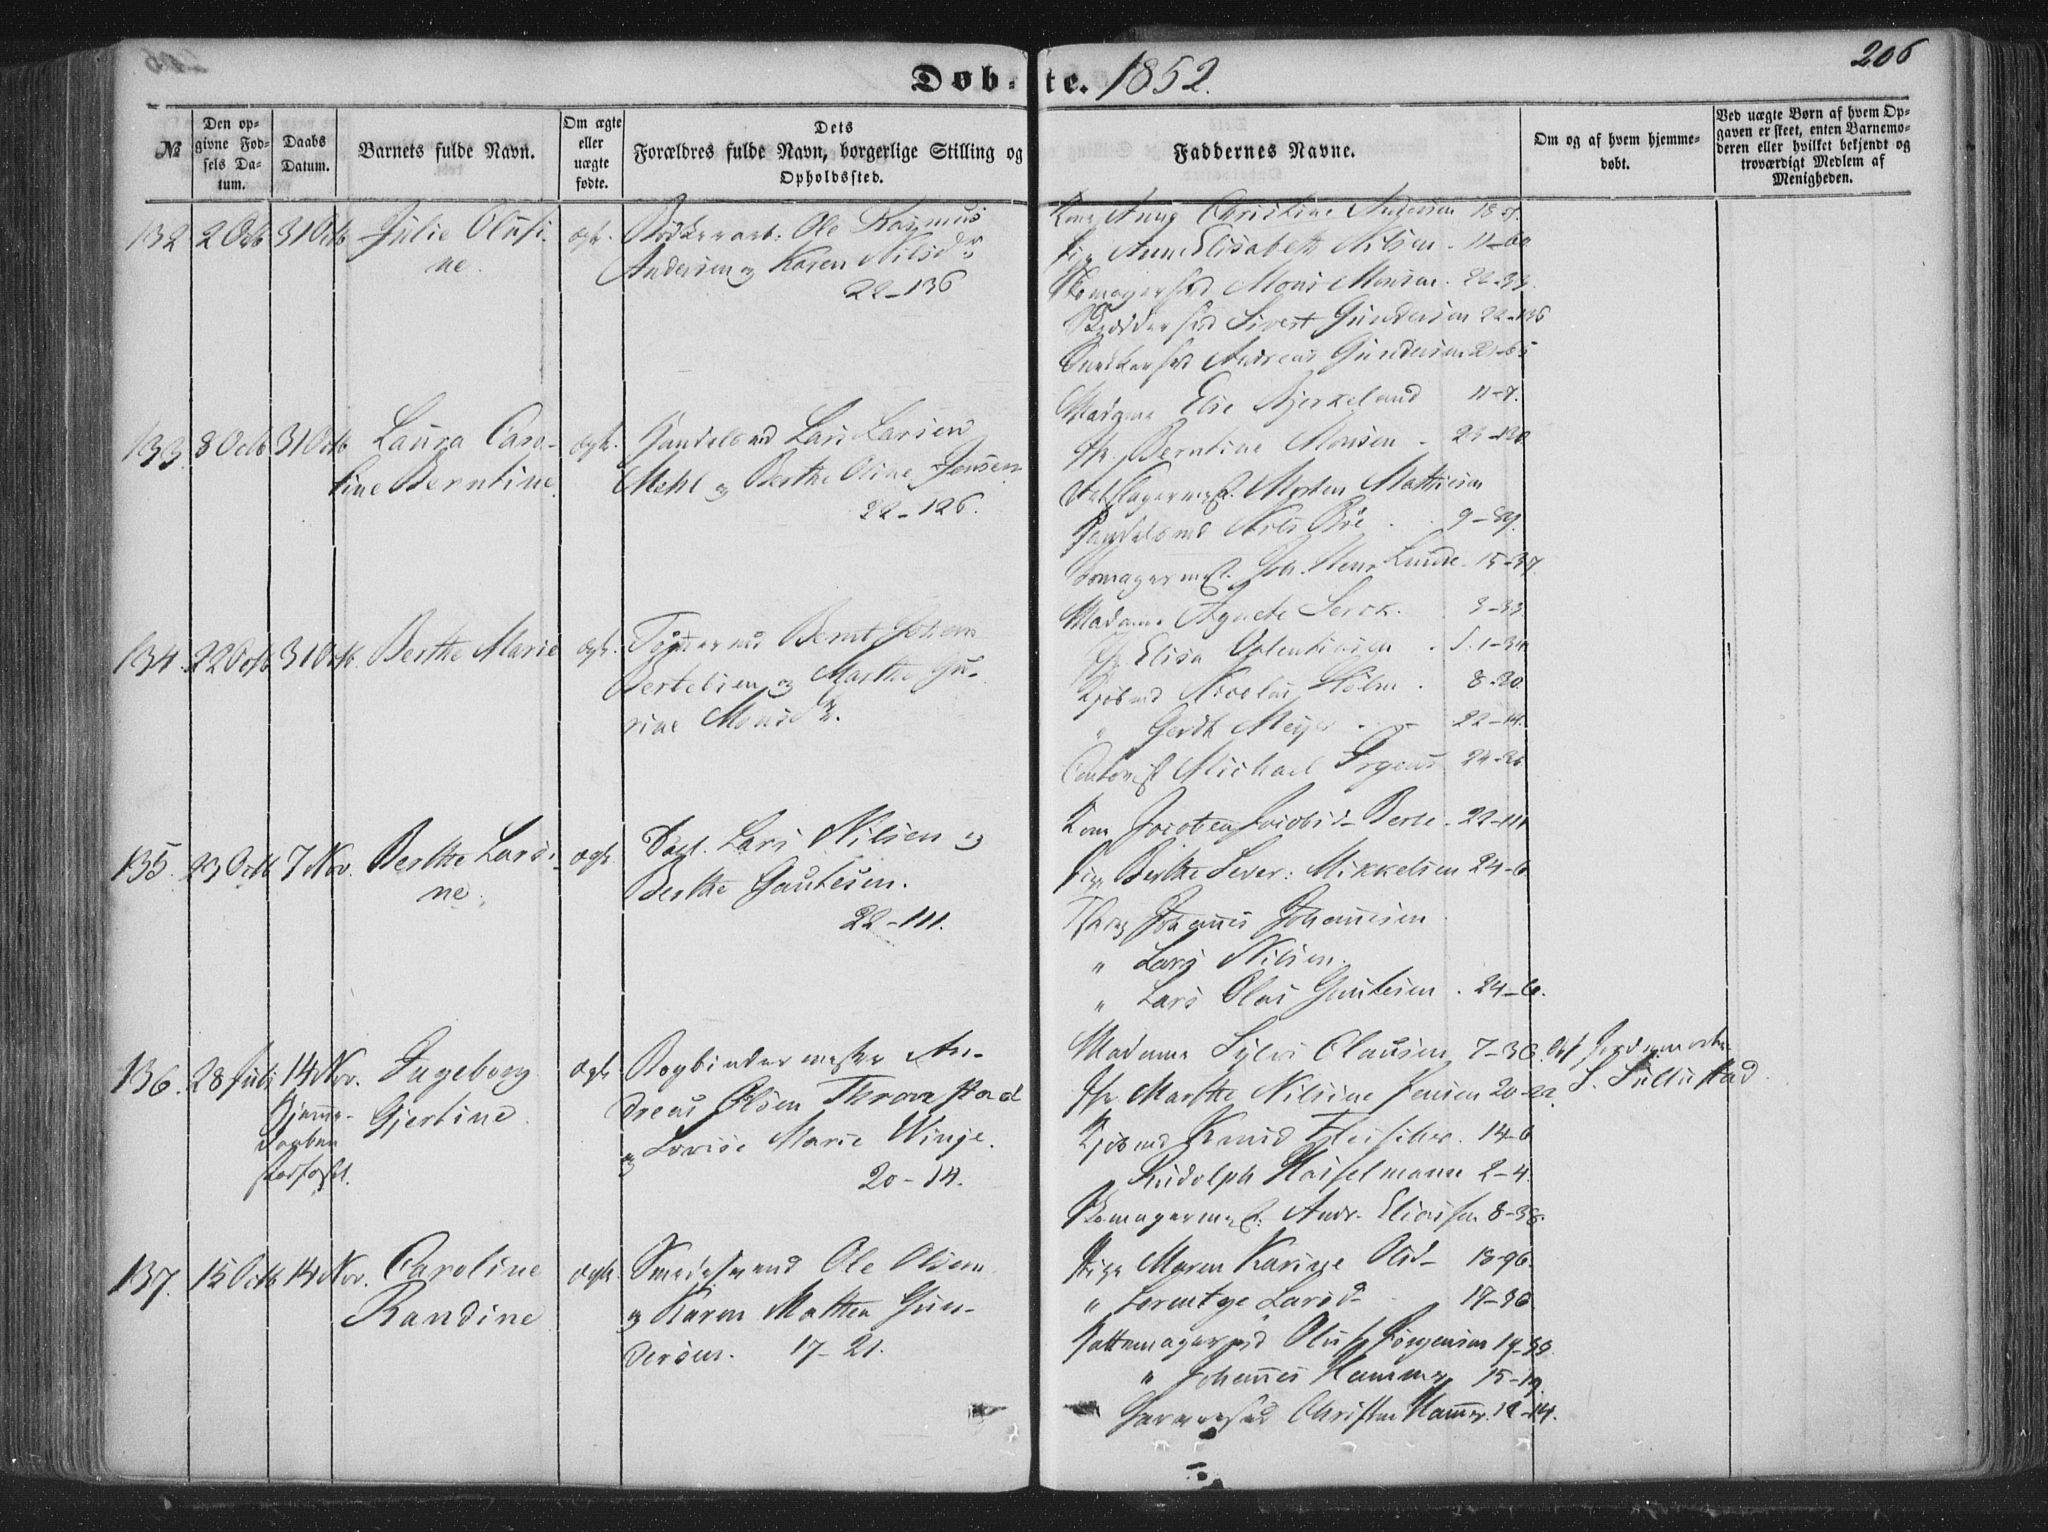 206
Døb-te. 1852.
№
Den op-
givne Fød-
sels Da-
tum.
Daabs
Datum.
Barnets fulde Navn.
Om ægte
eller
uægte
fødte.
Dets
Forældres fulde Navn, borgerlige Stilling og
Opholdssted.
Faddernes Navne.
Om og af hvem hjemme-
døbt.
Ved uægte Børn af hvem Op-
gaven er skeet, enten Barnemo-
deren eller hvilket bekjendt og
troværdigt Medlem af
Menigheden.
132 2 Octb 31 Octb Julie Olusi-
ne.
ægte. Ole Rasmus
Andersen og Karen Nilsdr
22-136
Kone Anne Christine Andersen 18-
Pige Anne Elisabeth Nilsen. 11-60
Skomagersvd Mons Monsen. 22-
Skrædder svd Sivert Gundersen 22-136
Snedkersvd Andreas Gundersen 21-65
133. 8 Octb 31 Octb Laura Caro-
line Berntine.
ægte. Handelsmd Lars Larsen
Mehl og Berthe Oline Jensen
22-126.
Madame Elie Bjerkeland 11-7.
Jfr. Berntine Monsen. 23-120
Morten Mathiesen
Handelsmd Nils Bøe 9-89.
Skomagermest. Joh. Lunde. 15-37.
134. 22 Octb 31 Octb. Berthe Marie
ægte. Bernt Johan
Bertelsen og Marthe Gu-
rine Monsdr.
Madame Agnete Serck. 3-33
Jfr Elisa Valentinsen. 1-34
Kjøbmd Nicolai Holm. 8-20.
" Gerdt Meyer. 22-14.
Contorist Michael Irgens 24-26
135. 23 Octb 7 Nov. Berthe Larsi-
ne.
ægte. Dagl. Lars Nilsen og
Berthe Gautesen.
22-111.
Kone Berle. 22-111
Pige Berthe Sever: Mikkelsen 24-6
Johannes Johannesen
" Lars Nilsen.
" Lars Olas Gautesen. 24-6.
136. 28 Juli 14 Nov.
Hjemme-
daaben
stadfæst.
Ingeborg
Gjertine
ægte Bogbindermester An-
dreas Olsen Thronstad
og Lovise Marie Winje.
20-14.
Madame Sylvi Clausen 7-36.
Jfr Marthe Nilsine Jensen 20-22.
Kjøbmd Knud Fleischer. 14-6
Rudolph Hasselmann 2-4.
Skomagermest. Andr. Eliassen 8-38.
Af Jordemoder
S. Sellestad.
137. 15 Octb 14 Nov. Caroline
Randine
ægte. Smedesvend Ole Olsen
og Karen Mathea Gun-
dersen. 17-21.
Pige Maren Karine Olsd 13-96.
" Lorentze Larsd 17-36
Pottemagersvd Oluf Jørgensen 19-33
" Johannes Hammer 15-19.
Garversvd Christen Hammer. 12-14.